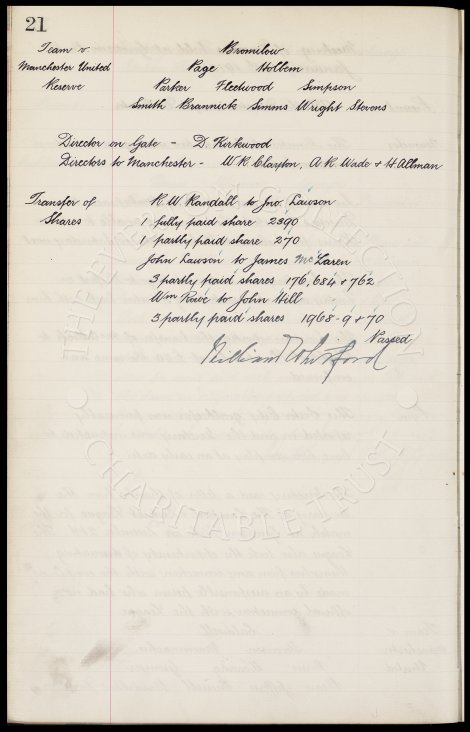 21
Team v. Bromilow
Manchester United Page Holbem
Reserve Parker Fleetwood Simpson
Smith Brannick Simms Wright Stevens
Director on Gate - D. Kirkwood
Directors to Manchester - W. R. Clayton, A. R. Wade + H. Allman
Transfer of R. W. Randall to Jno. Lawson
Shares 1 fully paid share 2390
1 partly paid share 270
John Lawson to James McLaren
3 partly paid shares 176, 684 + 762
Wm Rowe to John Hill
3 partly paid shares 1968-9 + 70
Passed
William Whitford
THE EVERTON COLLECTION
CHARITABLE TRUST